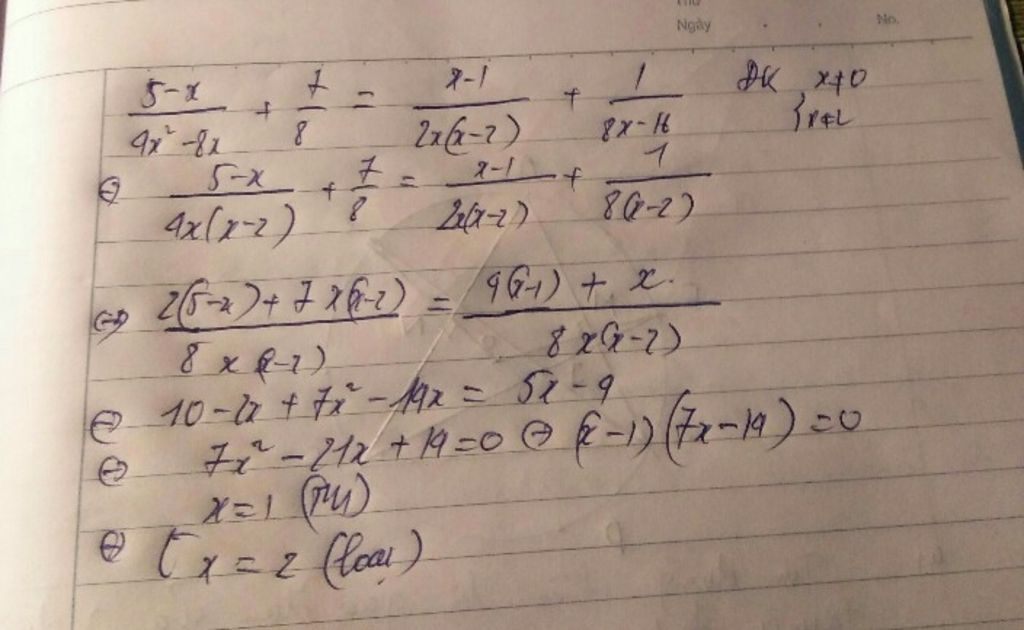 Thứ
Ngày . . No.
(5-x)/(4x² - 8x) + 7/8 = (x-1)/(2x(x-2)) + 1/(8x-16) ĐK { x≠0
x≠2
⇔ (5-x)/(4x(x-2)) + 7/8 = (x-1)/(2x(x-2)) + 1/(8(x-2))
⇔ (2(5-x) + 7x(x-2))/(8x(x-2)) = (4(x-1) + x.)/(8x(x-2))
⇔ 10 - 2x + 7x² - 14x = 5x - 4
⇔ 7x² - 21x + 14 = 0 ⇔ (x-1)(7x-14) = 0
⇔ [ x = 1 (TM)
x = 2 (loại)